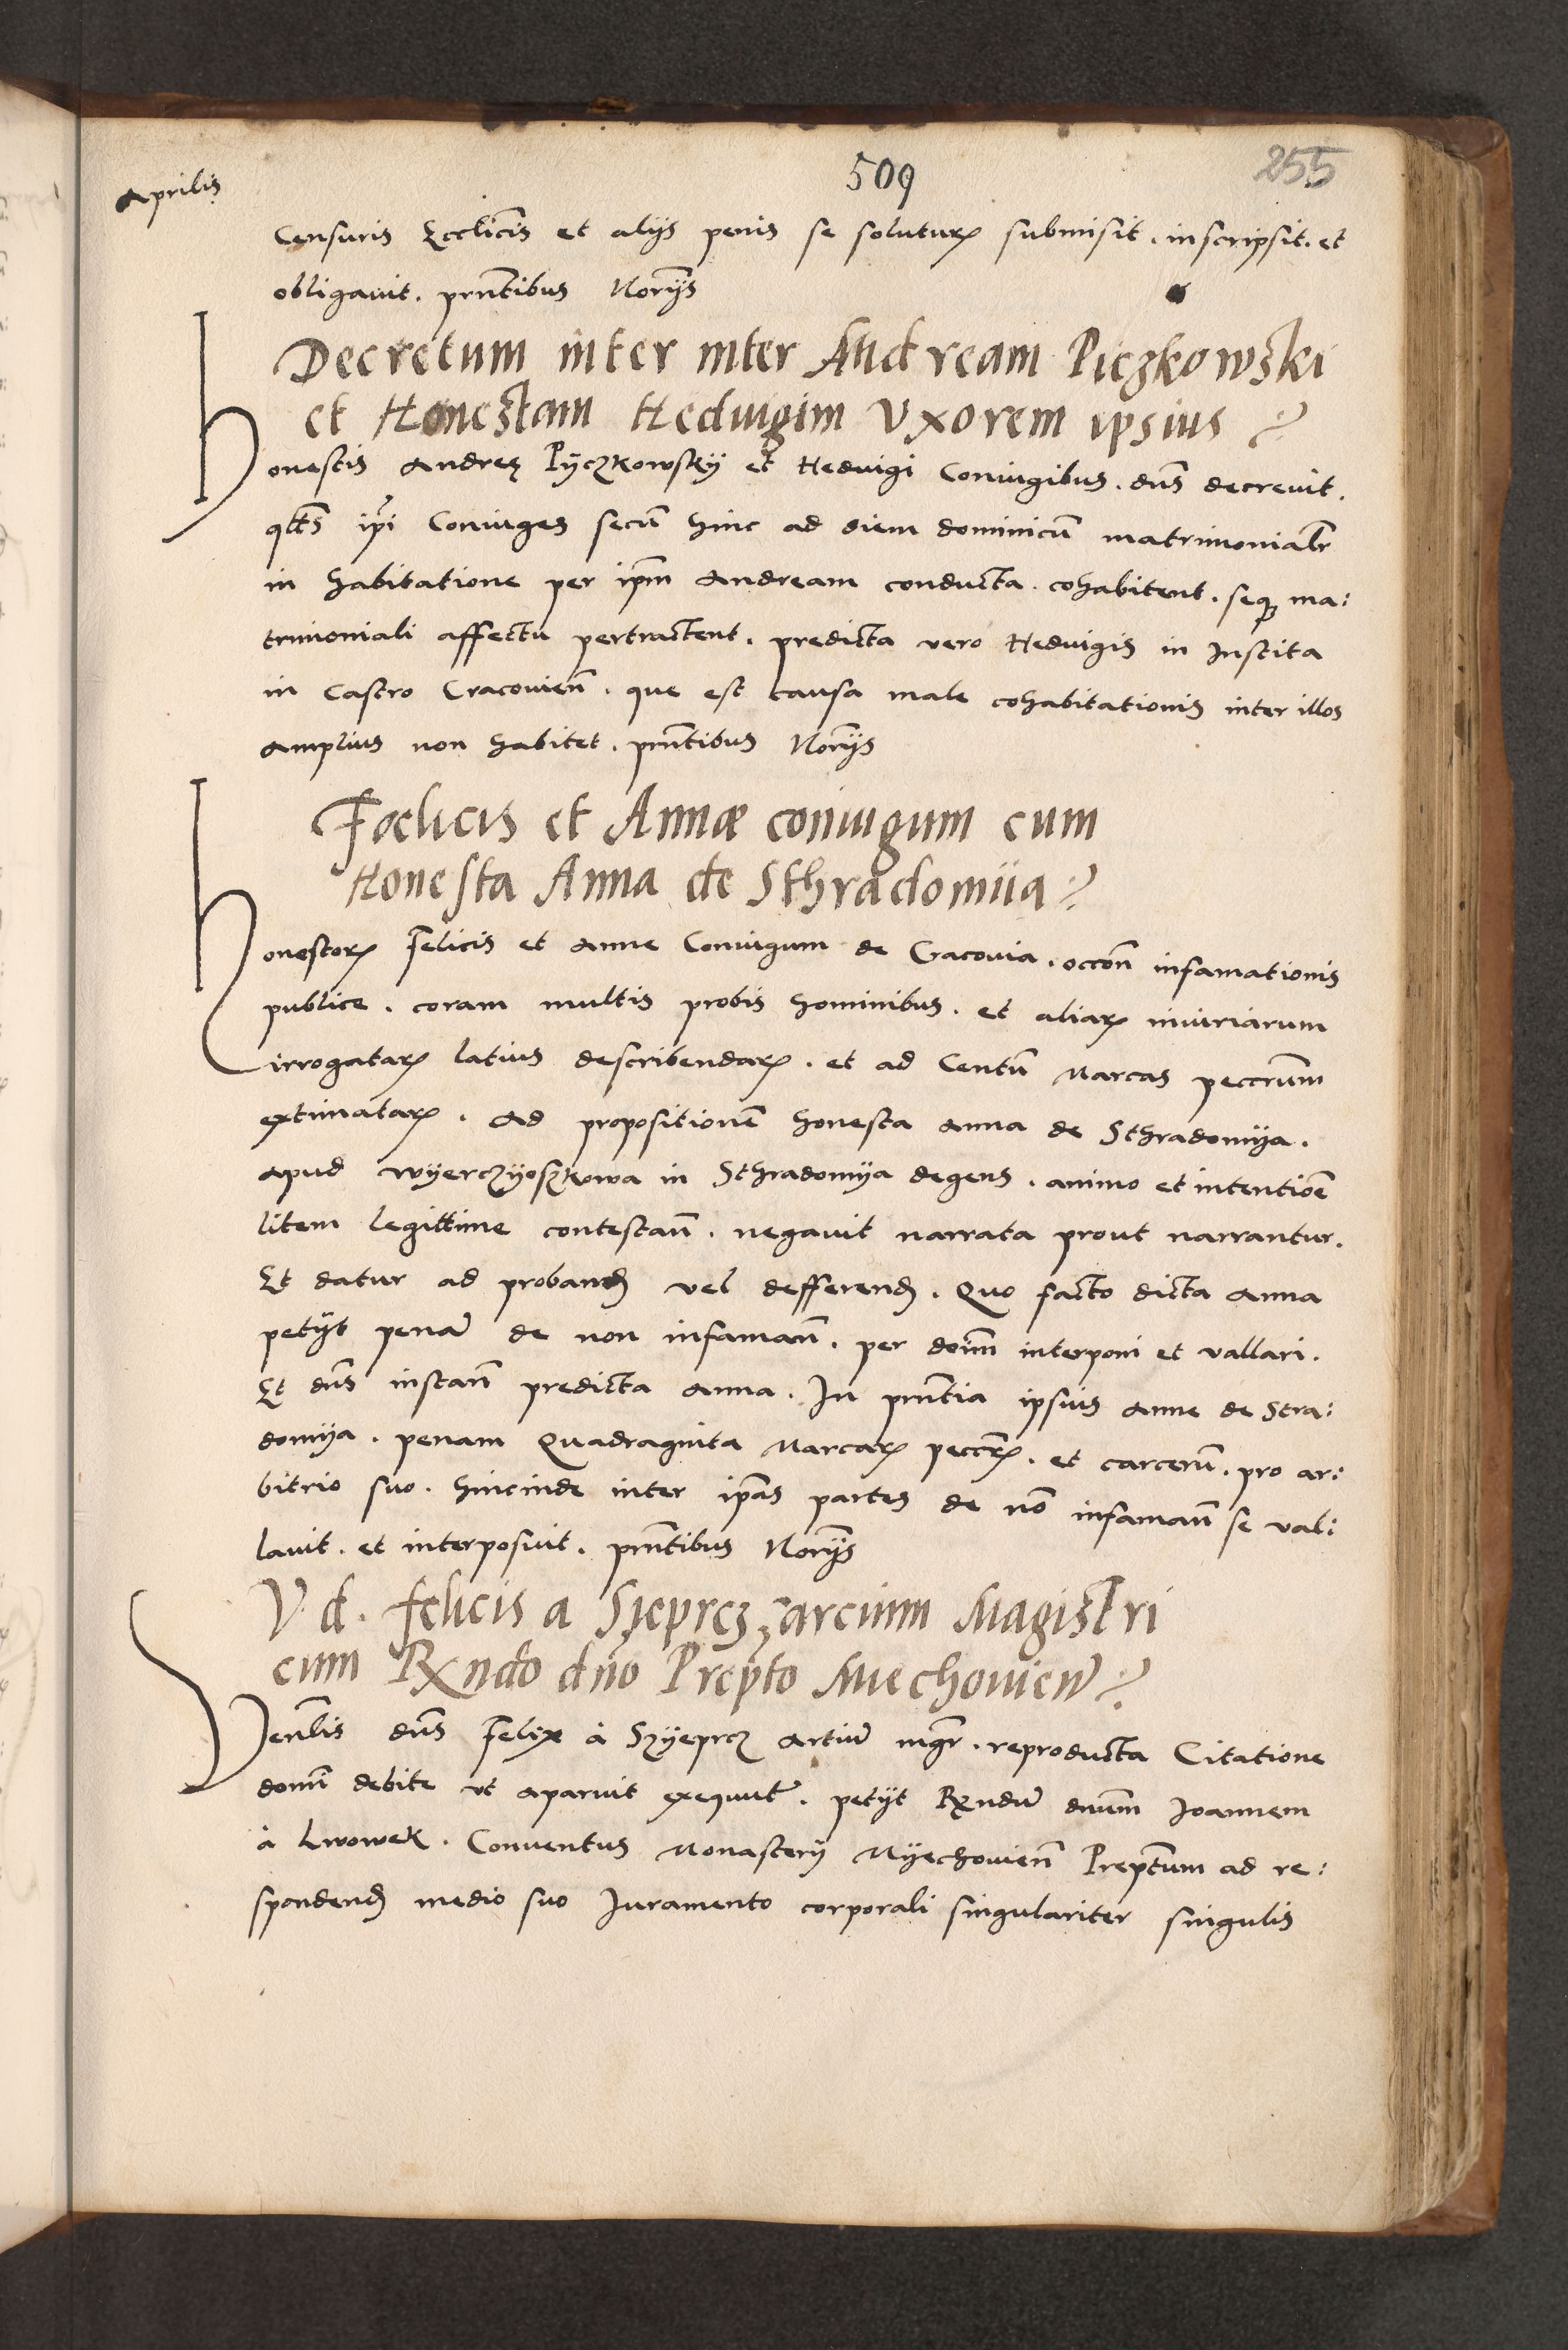 509
255
Aprilis
Censuris Ecclicis et alijs penis se soluturꝝ submisit. inscripsit. et
obligauit. pn̄tibus Norijs
Decretum inter inter Andream Piczkowski
et Honestam Heduigim Vxorem ipsius
Honestis Andreę Pyczkowsky et Heduigi Coniugibus. dn̄s decreuit.
qt̄s ipi Coniuges secū hinc ad diem dominicū matrimonialr̄
in habitatione per ipm̄ Andream conducta. cohabitent. seqȝ ma:
trimoniali affectu pertractent. predicta vero Heduigis in Inscita
in Castro Cracouien̄. que est causa male cohabitationis inter illos
amplius non habitet. pn̄tibus Norijs
Fœlicis et Annæ coniugum cum
Honesta Anna de Sthradomiia
Honestorꝝ Felicis et Anne Coniugum de Cracouia. occon̄ infamationis
publice. coram multis probis hominibus. et aliarꝝ iniuriarum
irrogatarꝝ latius describendarꝝ. et ad Centū Marcas peccrum̄
extimatarꝝ. Ad propositionē honesta Anna de Sthradomya.
apud Wyerczyoskowa in Sthradomya degens. animo et intentiōe
litem legittime contestan̄. negauit narrata prout narrantur.
Et datur ad proband̄ vel defferend̄. Quo facto dicta Anna
petijt penā de non infaman̄. per dnūm interponi et vallari.
Et dn̄s instan̄ predicta Anna. In pn̄tia ipsius Anne de Stra:
domya. penam Quadraginta Marcarꝝ peccrꝝ. et carcerū. pro ar:
bitrio suo. hincinde inter ipas partes de nō infaman̄ se val:
lauit. et interposuit. pn̄tibus Norijs
V. d. Felicis a Szeprcz arcium Magistri
cum Rxndo dn̄o Prepto Mechouien̄
Venlis dn̄s Felix à Szyeprcz Artiū mgr̄. reproducta Citatione
domī debite vt aparuit exequut̄. petijt Rxndū dnūm Joannem
à Lwowek. Conuentus Monasterij Myechouien̄ Preptum̄ ad re:
spondend̄ medio suo Juramento corporali singulariter singulis